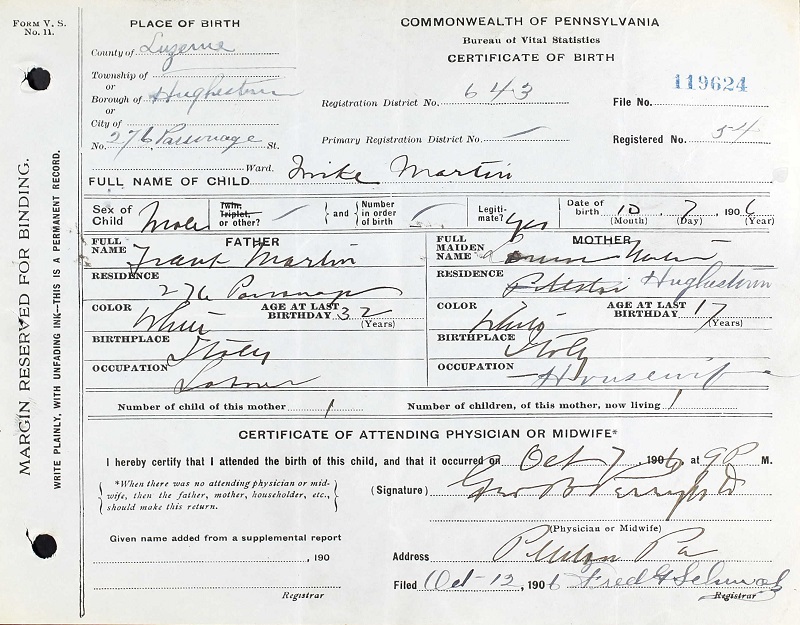 FORM V. S. No. 11.
MARGIN RESERVED FOR BINDING.
WRITE PLAINLY, WITH UNFADING INK—THIS IS A PERMANENT RECORD.
PLACE OF BIRTH
County of Luzerne
Township of
or
Borough of Hughestown
or
City of
No. 276 Parsonage St.
Ward.
COMMONWEALTH OF PENNSYLVANIA
Bureau of Vital Statistics
CERTIFICATE OF BIRTH
Registration District No. 643
File No. 119624
Primary Registration District No.
Registered No. 54
FULL NAME OF CHILD Mike Martin
Sex of Child Male
Twin, Triplet, or other?
and
Number in order of birth
Legitimate? Yes
Date of birth 10 7 1906
(Month) (Day) (Year)
FATHER
FULL NAME Frank Martin
RESIDENCE 276 Parsonage
COLOR White
AGE AT LAST BIRTHDAY 32 (Years)
BIRTHPLACE Italy
OCCUPATION Laborer
MOTHER
FULL MAIDEN NAME
RESIDENCE Pittston Hughestown
COLOR White
AGE AT LAST BIRTHDAY 17 (Years)
BIRTHPLACE Italy
OCCUPATION Housewife
Number of child of this mother 1
Number of children, of this mother, now living 1
CERTIFICATE OF ATTENDING PHYSICIAN OR MIDWIFE*
I hereby certify that I attended the birth of this child, and that it occurred on Oct 7, 1906, at 9 P M.
*When there was no attending physician or mid-
wife, then the father, mother, householder, etc.,
should make this return.
(Signature) Geo B
(Physician or Midwife)
Given name added from a supplemental report
, 190
Registrar
Address Pittston Pa
Filed Oct-12, 1906 Fred G
Registrar